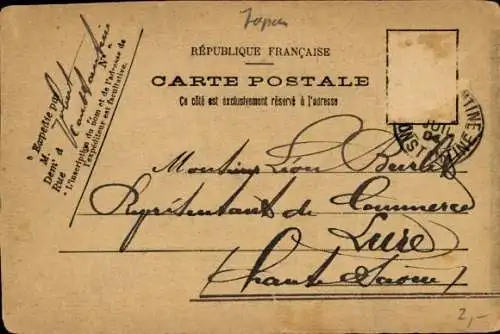 Japan
RÉPUBLIQUE FRANÇAISE
CARTE POSTALE
Ce côté est exclusivement réservé à l'adresse
Expédié par
M
Demt à
Rue N°
L'inscription du nom et de l'adresse de
l'expéditeur est facultative.
CONST TINE
Monsieur Léon
Représentant de Commerce
Lure
(Haute Saone)
2,-